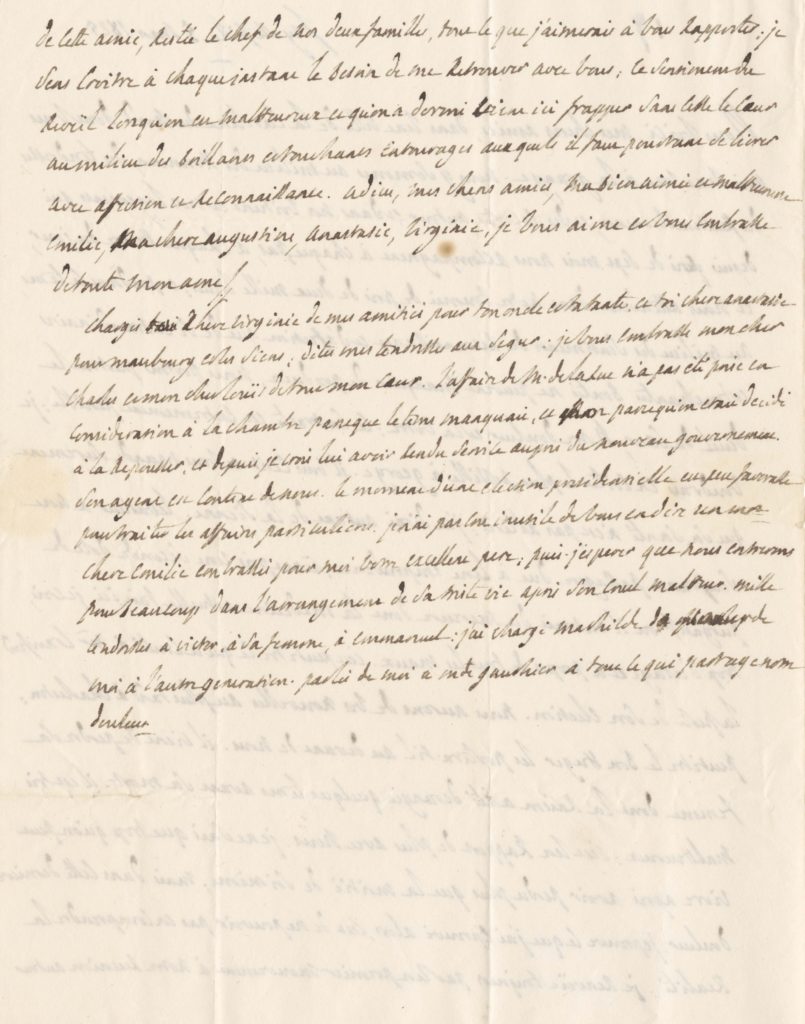 de cette amie, restée le chef de nos deux familles, tout ce que j'aimerais à vous rapporter; je
sens croitre à chaque instant le besoin de me retrouver avec vous; ce sentiment du
reveil lorsqu'on est malheureux et qu'on a dormi vient ici frapper sans cesse le cœur
au milieu des brillants et touchants entourages auxquels il faut pourtant se livrer
avec affection et reconnaissance. adieu, mes chers amis, ma bien aimée et malheureuse
emilie, ma chere augustine, anastasie, virginie, je vous aime et vous embrasse
de toute mon ame
chargés chere virginie de mes amitiés pour ton oncle et ta tante, et toi chere anastasie
pour maubourg et les siens; dites mes tendresses aux segur. je vous embrasse mon cher
charles et mon cher louis de tout mon cœur. l'affaire de Mr de la rue n'a pas été prise en
consideration à la chambre parceque le tems manquait, et parcequ'on etait decidé
à la repousser, et depuis je crois lui avoir rendu service auprès du nouveau gouvernement.
son agent est content de nous. le moment d'une election presidentielle est peu favorable
pour traiter les affaires particulieres. j'ai pas cru inutile de vous en dire un mot
chere emilie embrassés pour moi votre excellent pere; puis-j'esperer que nous entrerons
pour beaucoup dans l'arrangement de sa triste vie après son cruel malheur. mille
tendresses à victor, à sa femme, à emmanuel: j'ai chargé mathilde de
moi à l'autre generation. parlés de moi à gauthier à tout ce qui partage notre
douleur